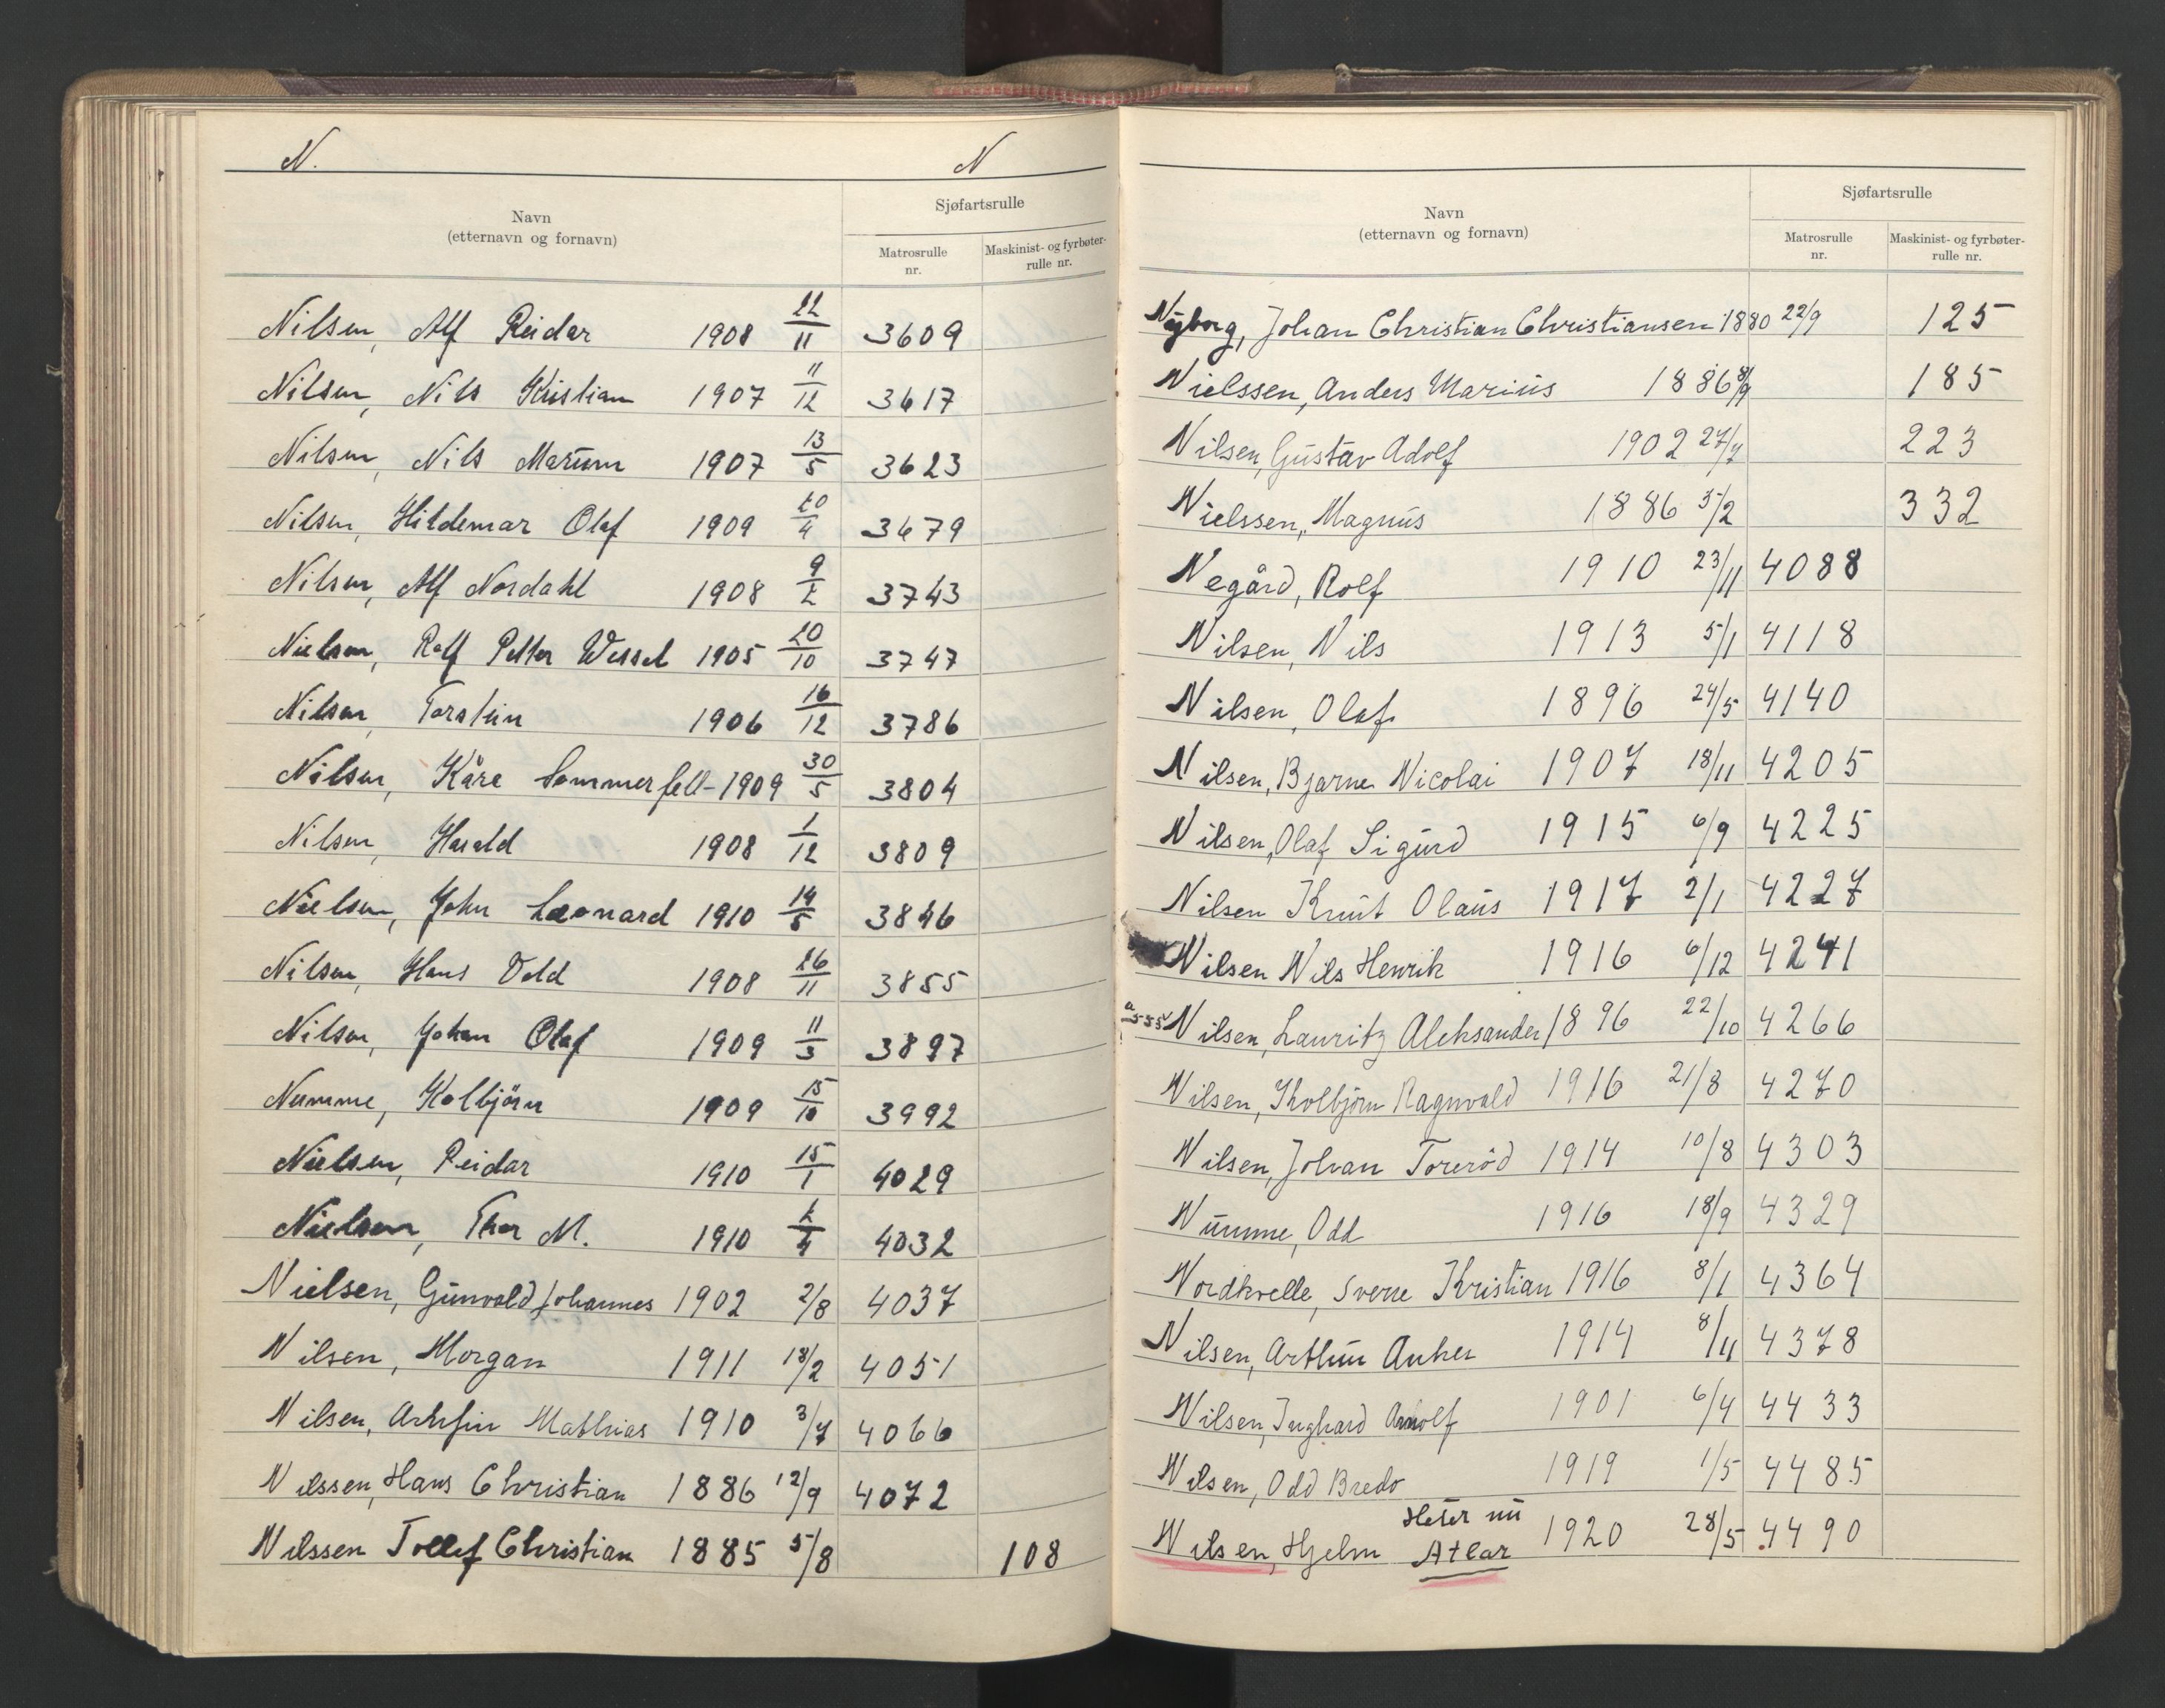 N. N
Navn
(etternavn og fornavn)
Sjøfartsrulle
Matrosrulle
nr.
Maskinist- og fyrbøter-
rulle nr.
Nilsen, Alf Reidar 1908 22/11 3609
Nilsen, Nils Kristian 1907 11/12 3617
Nilsen, Nils Marum 1907 13/5 3623
Nilsen, Hildemar Olaf 1909 20/4 3679
Nilsen, Alf Nordahl 1908 9/2 3743
Nielsen, Rolf Petter Wessel 1905 20/10 3747
Nilsen, Torstein 1906 16/12 3786
Nilsen, Kåre Sommerfelt 1909 30/5 3804
Nilsen, Harald 1908 1/12 3809
Nielsen, John Leonard 1910 14/5 3846
Nilsen, Hans Vold 1908 26/11 3855
Nilsen, Johan Olaf 1909 11/3 3897
Numme, Kolbjörn 1909 15/10 3992
Nielsen, Reidar 1910 15/1 4029
Nielsen, Thor M. 1910 2/4 4032
Nielsen, Gunvald Johannes 1902 2/8 4037
Nilsen, Morgan 1911 18/2 4051
Nilsen, Arnfin Mathias 1910 3/7 4066
Nilssen, Hans Christian 1886 12/9 4072
Nilssen Tollef Christian 1885 5/8 108
Navn
(etternavn og fornavn)
Sjøfartsrulle
Matrosrulle
nr.
Maskinist- og fyrbøter-
rulle nr.
Nyborg, Johan Christian Christiansen 1880 22/9 125
Nielssen, Anders Marius 1886 8/9 185
Nilsen, Gustav Adolf 1902 27/7 223
Nielssen, Magnus 1886 5/2 332
Negård, Rolf 1910 23/11 4088
Nilsen, Nils 1913 5/1 4118
Nilsen, Olaf 1896 24/5 4140
Nilsen, Bjarne Nicolai 1907 18/11 4205
Nilsen, Olaf Sigurd 1915 6/9 4225
Nilsen Knut Olaus 1917 2/1 4227
Nilsen Nils Henrik 1916 6/12 4241
Nilsen, Lauritz Aleksander 1896 22/10 4266
Nilsen, Kolbjørn Ragnvald 1916 21/8 4270
Nilsen, Johan Torerød 1914 10/8 4303
Numme, Odd 1916 18/9 4329
Nordkvelle, Sverre Kristian 1916 8/1 4364
Nilsen, Arthur Anker 1914 8/11 4378
Nilsen, Inghard Arnolf 1901 6/4 4433
Nilsen, Odd Bredo 1919 1/5 4485
Heter nu
Nilsen, Hjelm Atlar 1920 28/5 4490